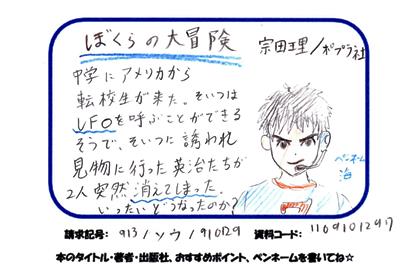 ぼくらの大冒険
宗田理/ポプラ社
中学にアメリカから
転校生が来た。そいつは
UFOを呼ぶことができる
そうで、そいつに誘われ
見物に行った英治たちが
2人突然消えてしまった。
いったいどうなったのか?
ペンネーム
海
請求記号: 913/ソウ/910129 資料コード: 1109101297
本のタイトル・著者・出版社、おすすめポイント、ペンネームを書いてね☆